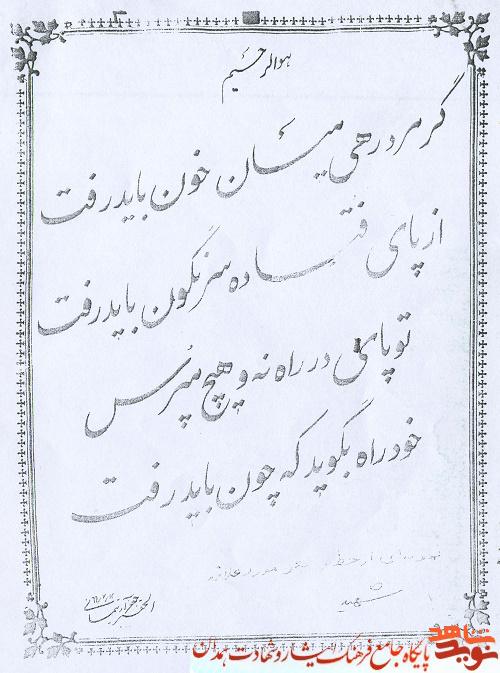 هوالرحیم
گر مرد رهی میان خون باید رفت
از پای فتاده سرنگون باید رفت
تو پای در راه نه و هیچ مپرس
خود راه بگوید که چون باید رفت
نمونه‌ای از خط و شعر مورد علاقه
شهید
نوید شاهد
پایگاه جامع فرهنگ ایثار و شهادت همدان